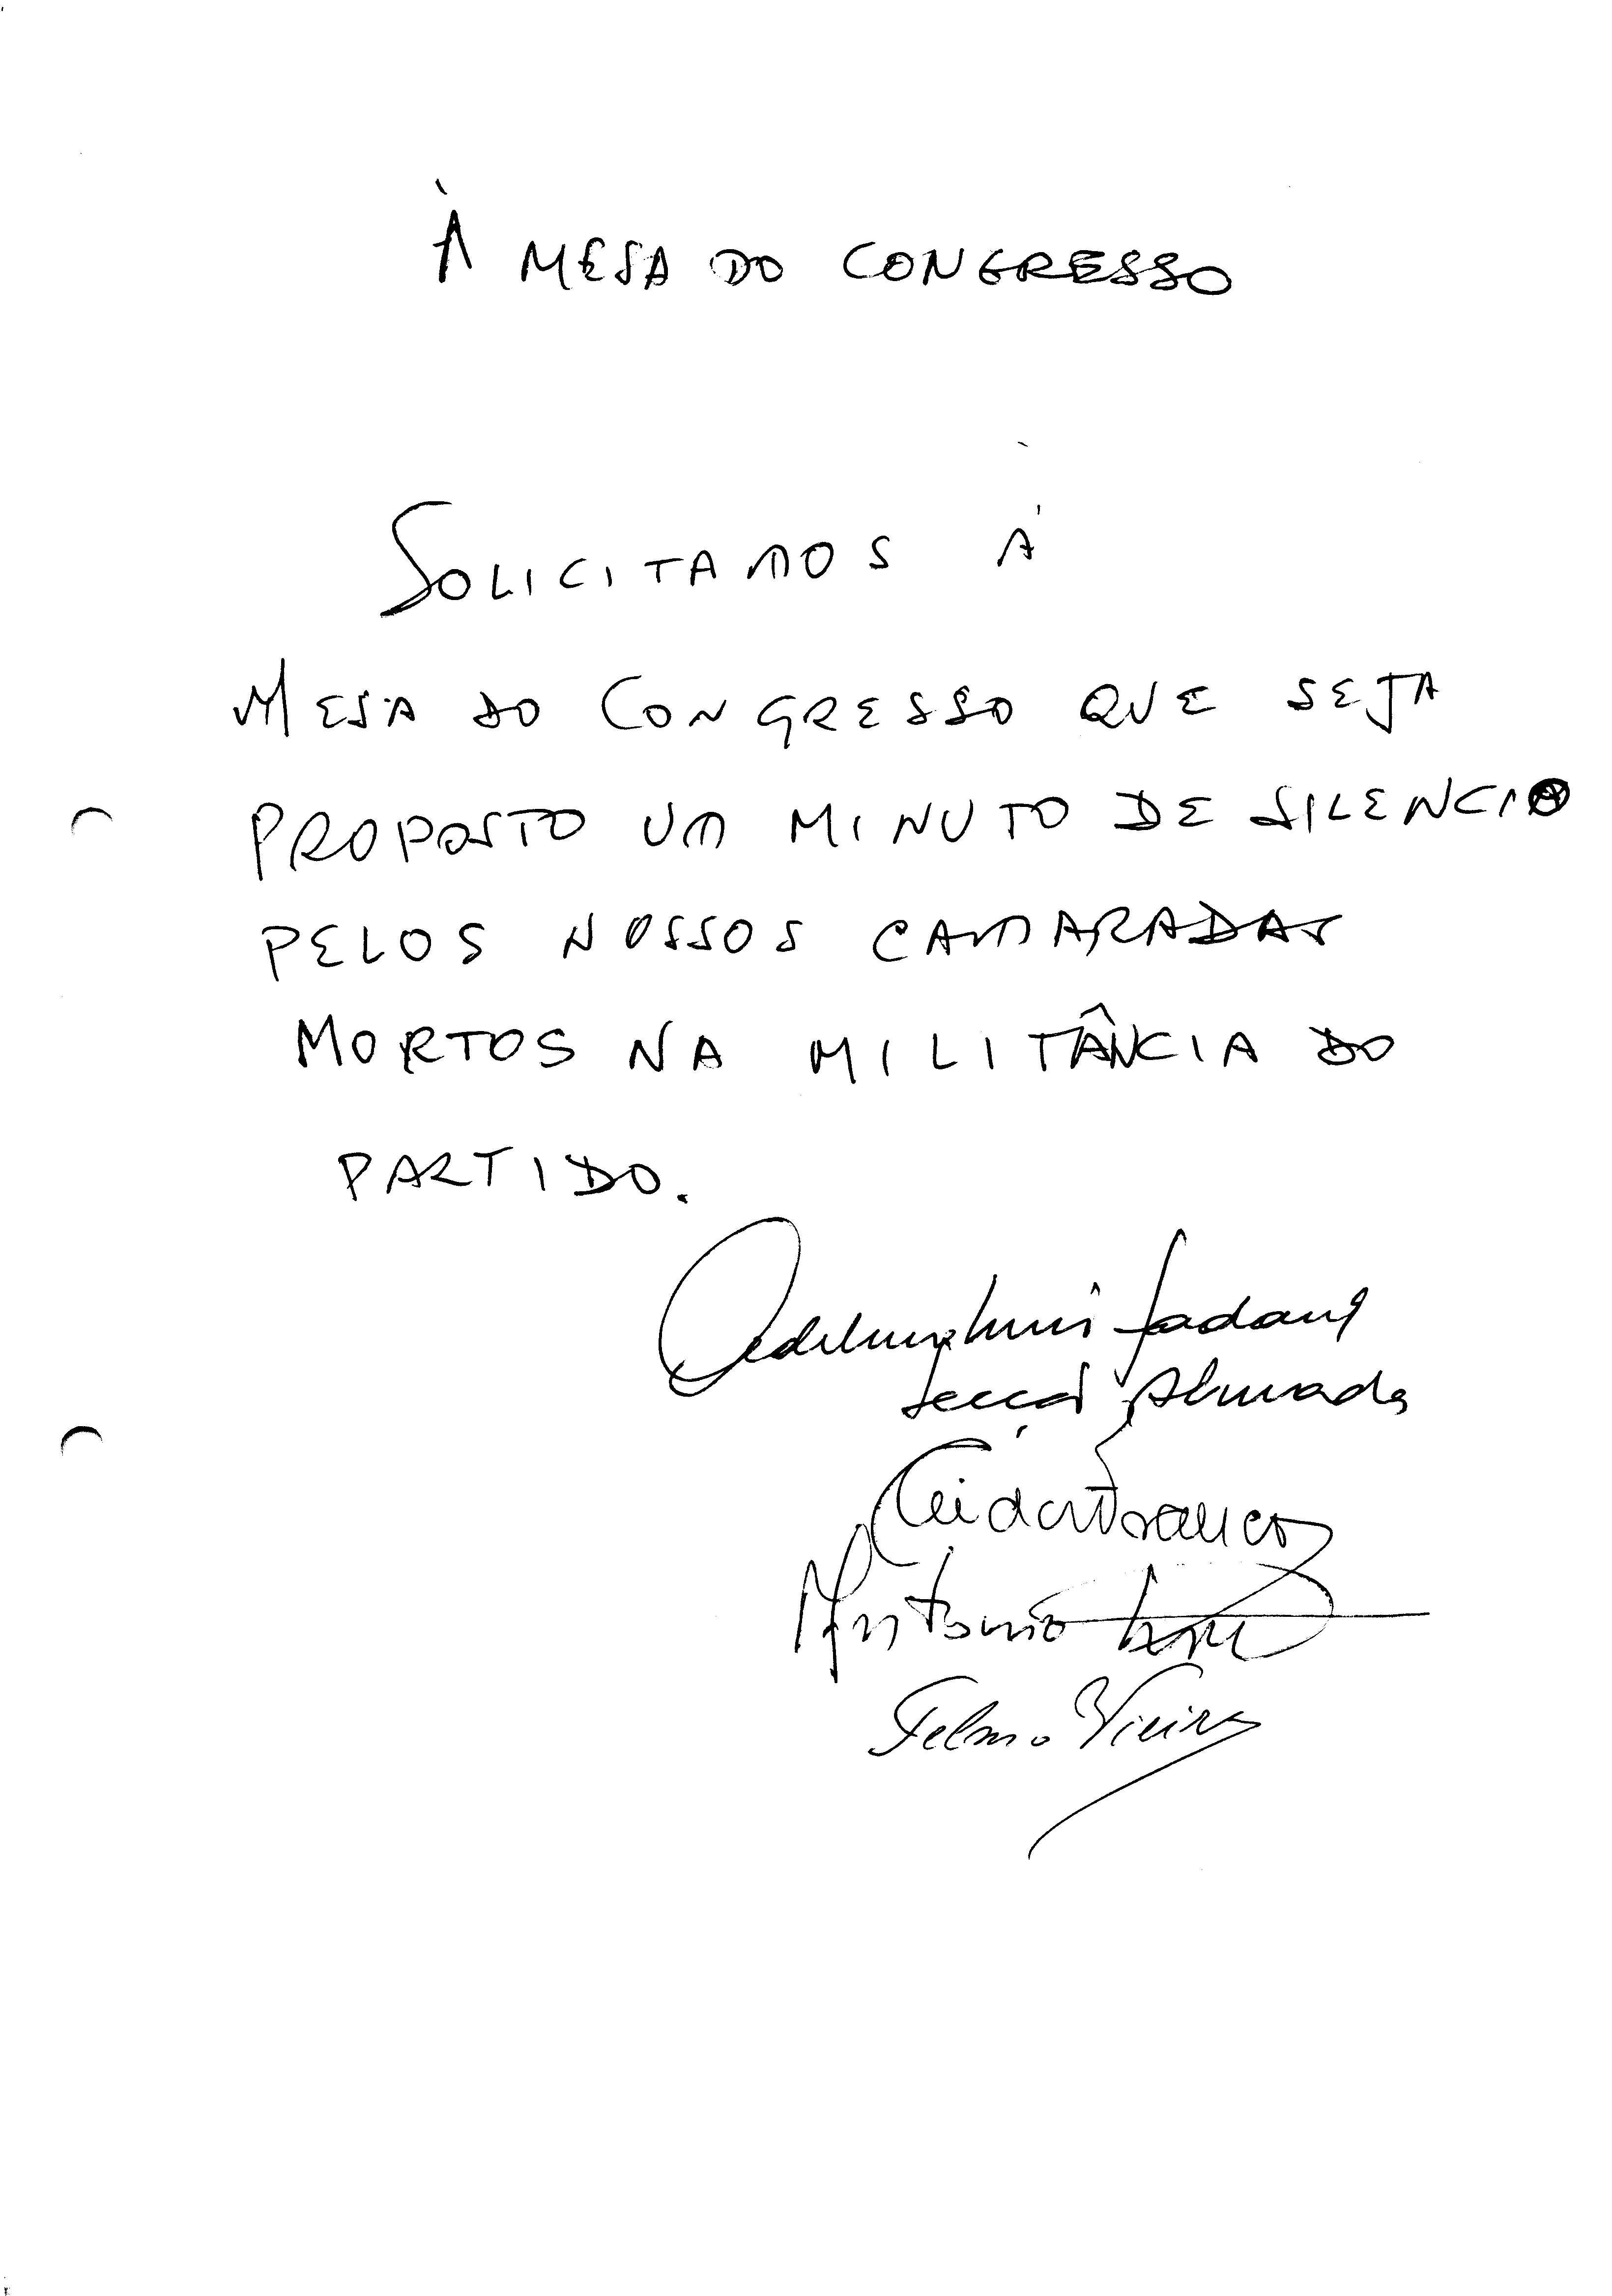 À MESA DO CONGRESSO
SOLICITAMOS À
MESA DO CONGRESSO QUE SEJA
PROPOSTO UM MINUTO DE SILENCIO
PELOS NOSSOS CAMARADAS
MORTOS NA MILITÂNCIA DO
PARTIDO.
secção Almada
Franco
António
Telmo Vieira